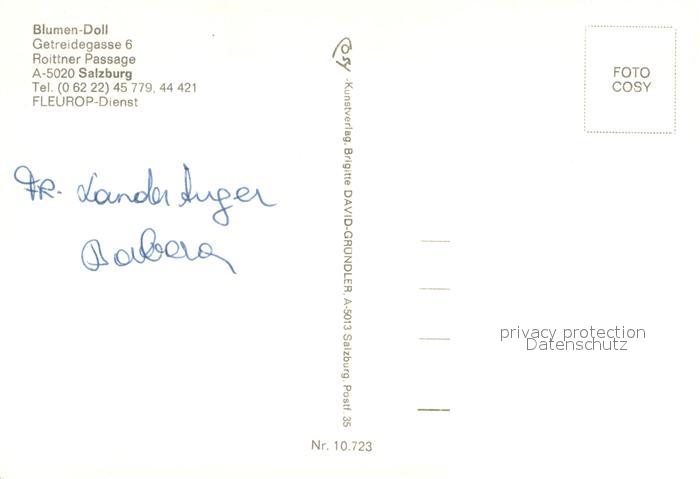 Blumen-Doll
Getreidegasse 6
Roittner Passage
A-5020 Salzburg
Tel. (0 62 22) 45 779, 44 421
FLEUROP-Dienst
FOTO
COSY
Cosy -Kunstverlag, Brigitte DAVID-GRÜNDLER, A-5013 Salzburg, Postf. 35
Fr.
Barbara
privacy protection
Datenschutz
Nr. 10.723